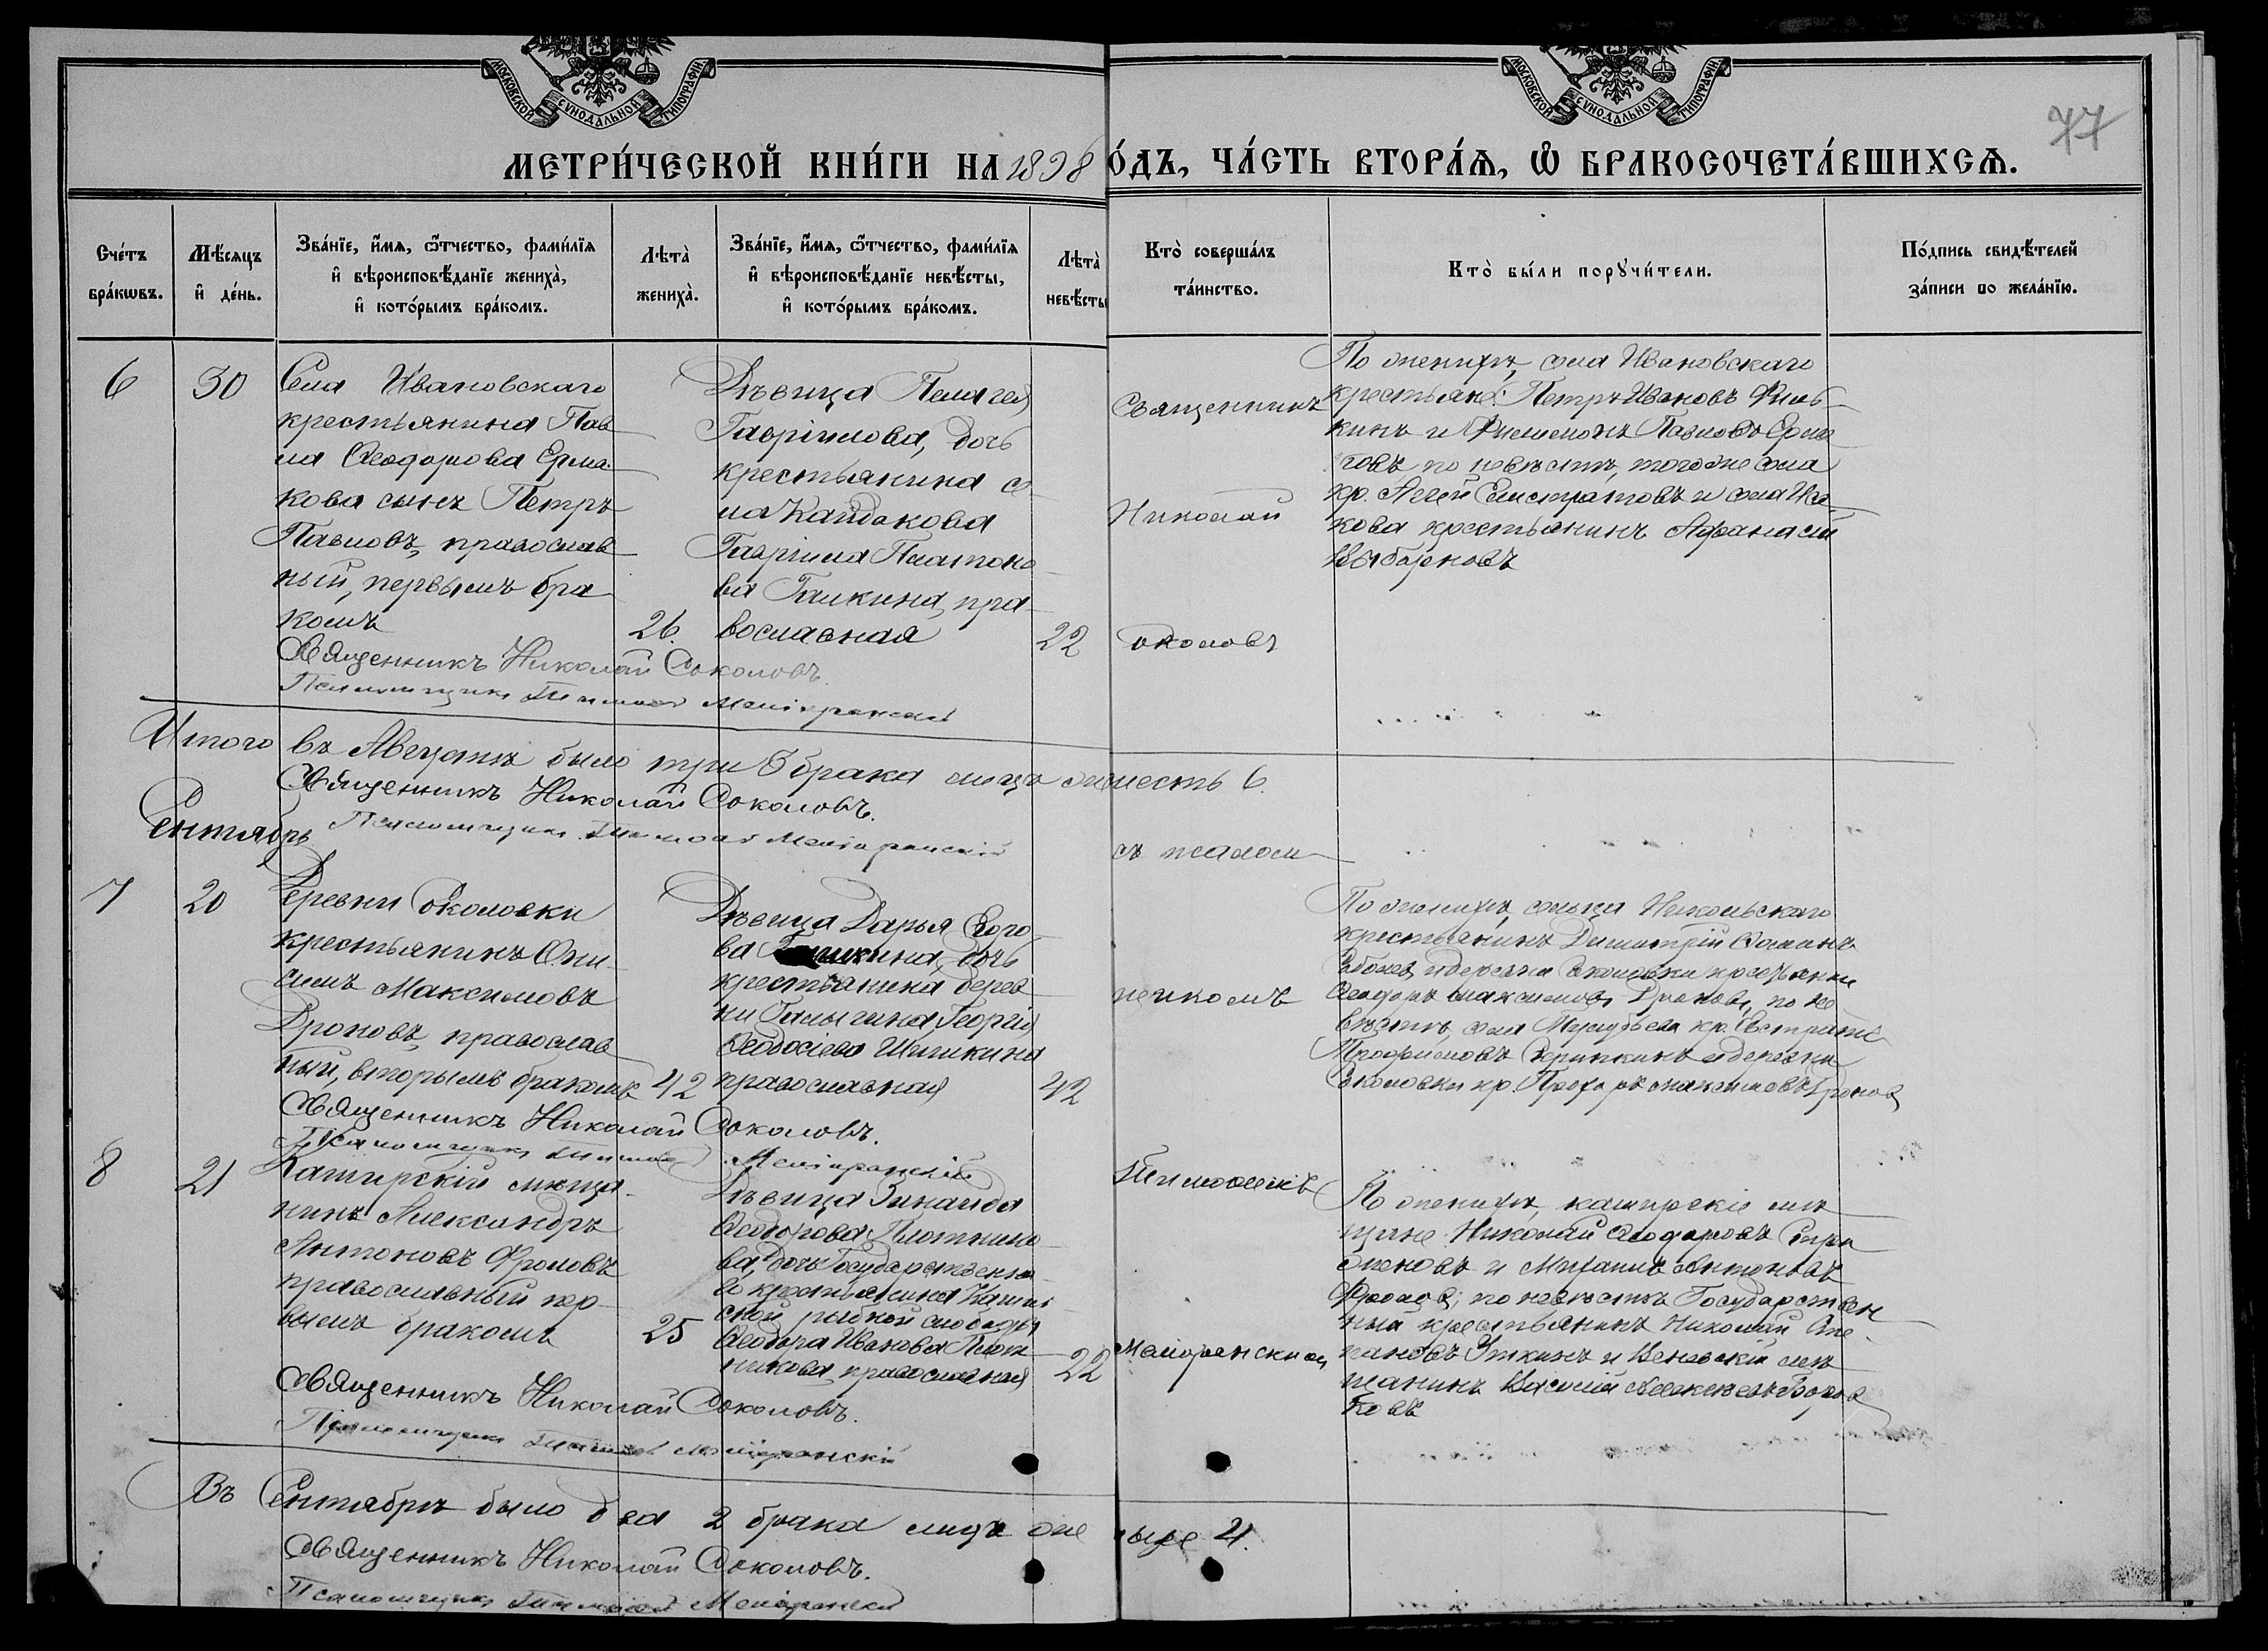 МОСКОВСКОЙ СѴНОДАЛЬНОЙ ТИПОГРАФІИ
МОСКОВСКОЙ СѴНОДАЛЬНОЙ ТИПОГРАФІИ
77
МЕТРИ́ЧЕСКОЙ КНИ́ГИ НА 1898
О́ДЪ, ЧА́СТЬ ВТОРА́Ѧ, Ѽ БРАКОСОЧЕТА́ВШИХСѦ.
Сче́тъ
бра́кѡвъ.
Мѣ́сяцъ
и҆ де́нь.
Зва́нїе, и҆́мѧ, ѻ҆́тчество, фами́лїѧ
и҆ вѣроисповѣ́данїе жениха̀,
и҆ кото́рымъ бра́комъ.
Лѣта̀
жениха̀.
Зва́нїе, и҆́мѧ, ѻ҆́тчество, фами́лїѧ
и҆ вѣроисповѣ́данїе невѣ́сты,
и҆ кото́рымъ бра́комъ.
Лѣта̀
невѣ́сты
Кто̀ соверша́лъ
та́инство.
Кто̀ бы́ли порꙋчи́тели.
По́дпись свидѣ́телей
за́писи по жела́нїю.
6
30
Села Ивановскаго
крестьянина Пав
ла Ѳеодорова Ерма-
кова сынъ Петръ
Павловъ, православ
ный, первымъ бра
комъ
26.
Дѣвица Пелагея
Гавріилова, дочь
крестьянина се-
ла Кайдакова
Гавріила Платоно
ва Галкина, пра
вославная
22
Священникъ
Николай
Соколовъ
По женихѣ, села Ивановскаго
крестьяне: Петръ Ивановъ Филь
кинъ и Филимонъ Павловъ Ерма
ковъ по невѣстѣ, тогоже села
кр. Елистратовъ и села
кова крестьянинъ Афанасій
Священникъ Николай Соколовъ.
Псаломщикъ Тимоѳей Меліоранскій
Итого въ Августѣ было три 3 брака лицъ же шесть 6.
Священникъ Николай Соколовъ.
Псаломщикъ Тимоѳей Меліоранскій
Сентябрь
съ псалом
7
20
Деревни Соколовки
крестьянинъ Они-
симъ Максимовъ
Дроновъ, православ
ный, вторымъ бракомъ
42
Дѣвица Дарья Его
ва дочь
крестьянина дерев
ни Галыгина Георгія
Ѳеодосіева Шишкина
православная
42
щикомъ
По женихѣ, сельца Никольскаго
крестьянинъ Димитрій
и деревни Соколовки крестьянинъ
Ѳеодоръ Максимовъ Дроновъ, по не
вѣстѣ, села кр.
Трофимовъ и деревни
Соколовки кр. Прохоръ Максимовъ Дроновъ
Священникъ Николай Соколовъ.
Псаломщикъ Тимоѳей Меліоранскій
8
21
Каширскій мѣща-
нинъ Александръ
Антоновъ Фроловъ
православный пер
вымъ бракомъ
25
Дѣвица Зинаида
Ѳеодорова Плотнико
ва, дочь Государственна
го крестьянина Кашир
ской рыбной слободы
Ѳеодора Иванова Плот
никова, православная
22
Тимоѳеемъ
Меліоранскимъ
По женихѣ, каширскіе мѣ
щане Николай Ѳеодоровъ Стри
женовъ и Михаилъ Антоновъ
Фроловъ; по невѣстѣ Государствен
ный крестьянинъ Николай Сте-
пановъ Уткинъ и Веневскій мѣ
щанинъ Василій
ковъ
Священникъ Николай Соколовъ.
Псаломщикъ Тимоѳей Меліоранскій
Въ Сентябрѣ было два 2 брака лицъ же четыре 4.
Священникъ Николай Соколовъ.
Псаломщикъ Тимоѳей Меліоранскій